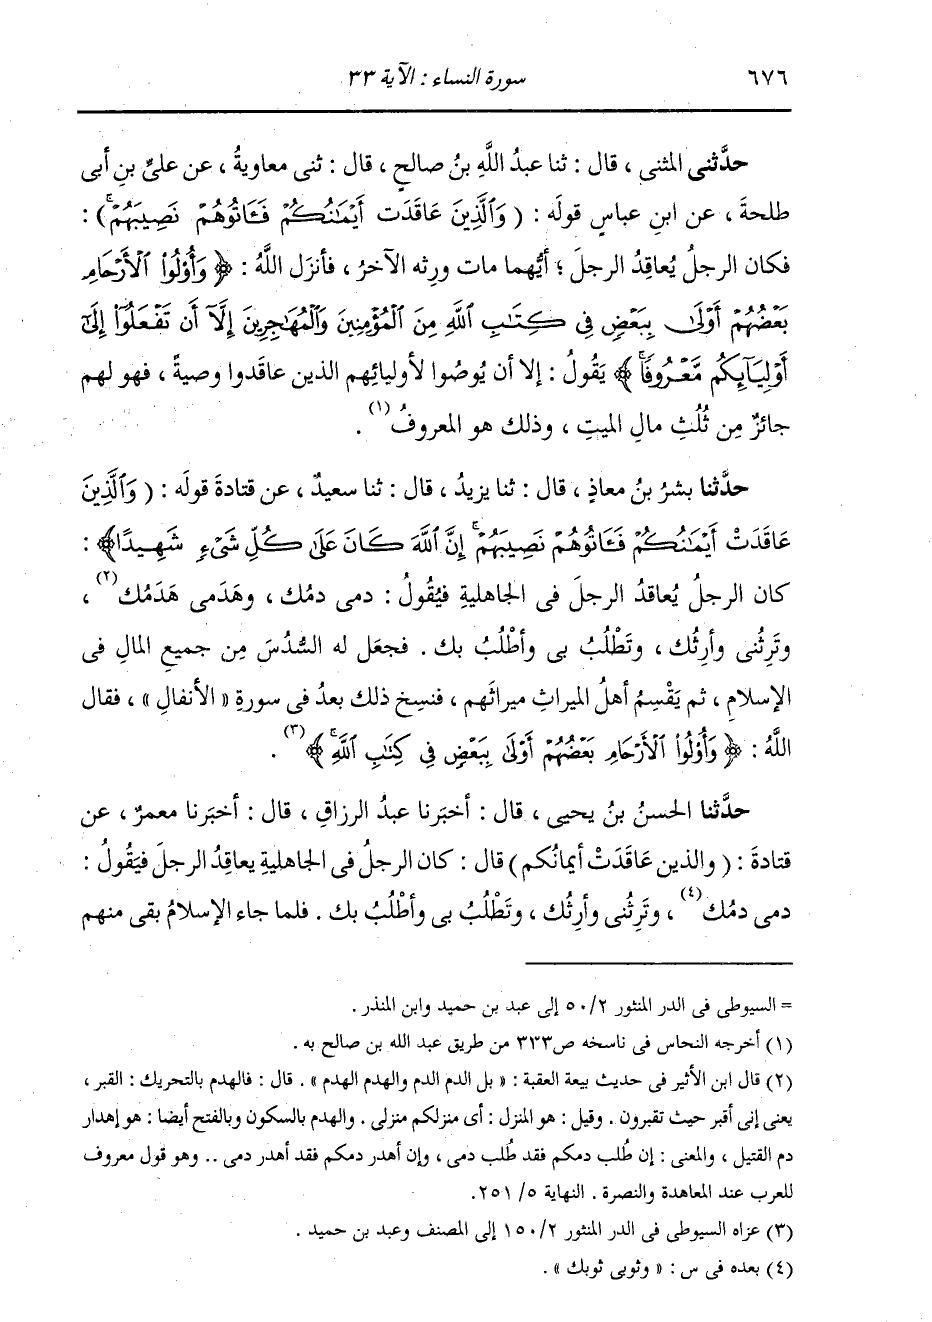 ٦٧٦ سورة النساء : الآية ٣٣
حدَّثنى المثنى ، قال : ثنا عبدُ اللَّهِ بنُ صالحٍ ، قال : ثنى معاويةُ ، عن علىِّ بنِ أبى
طلحةَ ، عن ابنِ عباسٍ قولَه : ( وَٱلَّذِينَ عَاقَدَت أَيْمَٰنُكُمْ فَـَٔاتُوهُمْ نَصِيبَهُمْ ۚ) :
فكان الرجلُ يُعاقِدُ الرجلَ ؛ أيُّهما مات ورِثه الآخرُ ، فأنزَل اللَّهُ : ﴿ وَأُوْلُواْ ٱلْأَرْحَامِ
بَعْضُهُمْ أَوْلَىٰ بِبَعْضٍ فِي كِتَٰبِ ٱللَّهِ مِنَ ٱلْمُؤْمِنِينَ وَٱلْمُهَٰجِرِينَ إِلَّآ أَن تَفْعَلُوٓاْ إِلَىٰٓ
أَوْلِيَآئِكُم مَّعْرُوفًا ۚ﴾ يَقُولُ : إلا أن يُوصُوا لأوليائِهم الذين عاقَدوا وصيةً ، فهو لهم
جائزٌ مِن ثُلُثِ مالِ الميتِ ، وذلك هو المعروفُ (١) .
حدَّثنا بشرُ بنُ معاذٍ ، قال : ثنا يزيدُ ، قال : ثنا سعيدٌ ، عن قتادةَ قولَه : ( وَٱلَّذِينَ
عَاقَدَتْ أَيْمَٰنُكُمْ فَـَٔاتُوهُمْ نَصِيبَهُمْ ۚ إِنَّ ٱللَّهَ كَانَ عَلَىٰ كُلِّ شَىْءٍ شَهِيدًا﴾ :
كان الرجلُ يُعاقدُ الرجلَ فى الجاهليةِ فيُقُولُ : دمى دمُك ، وهَدَمى هَدَمُك (٢) ،
وتَرِثُنى وأرِثُك ، وتَطْلُبُ بى وأطْلُبُ بك . فجعَل له السُّدُسَ مِن جميعِ المالِ فى
الإسلامِ ، ثم يَقْسِمُ أهلُ الميراثِ ميراثَهم ، فنسِخ ذلك بعدُ فى سورةِ « الأنفالِ » ، فقال
اللَّهُ : ﴿ وَأُوْلُواْ ٱلْأَرْحَامِ بَعْضُهُمْ أَوْلَىٰ بِبَعْضٍ فِي كِتَٰبِ ٱللَّهِ ۚ﴾ (٣) .
حدَّثنا الحسنُ بنُ يحيى ، قال : أخبَرنا عبدُ الرزاقِ ، قال : أخبَرنا معمرٌ ، عن
قتادةَ : ( والذين عَاقَدَتْ أيمانُكم ) قال : كان الرجلُ فى الجاهليةِ يعاقِدُ الرجلَ فيَقُولُ :
دمى دمُك (٤) ، وتَرِثُنى وأرِثُك ، وتَطْلُبُ بى وأطْلُبُ بك . فلما جاء الإسلامُ بقى منهم
= السيوطى فى الدر المنثور ٥٠/٢ إلى عبد بن حميد وابن المنذر .
(١) أخرجه النحاس فى ناسخه ص٣٣٣ من طريق عبد الله بن صالح به .
(٢) قال ابن الأثير فى حديث بيعة العقبة : « بل الدم الدم والهدم الهدم » . قال : فالهدم بالتحريك : القبر ،
يعنى إنى أقبر حيث تقبرون . وقيل : هو المنزل : أى منزلكم منزلى . والهدم بالسكون وبالفتح أيضا : هو إهدار
دم القتيل ، والمعنى : إن طُلب دمكم فقد طُلب دمى ، وإن أهدر دمكم فقد أهدر دمى .. وهو قول معروف
للعرب عند المعاهدة والنصرة . النهاية ٥/ ٢٥١.
(٣) عزاه السيوطى فى الدر المنثور ١٥٠/٢ إلى المصنف وعبد بن حميد .
(٤) بعده فى س : « وثوبى ثوبك » .